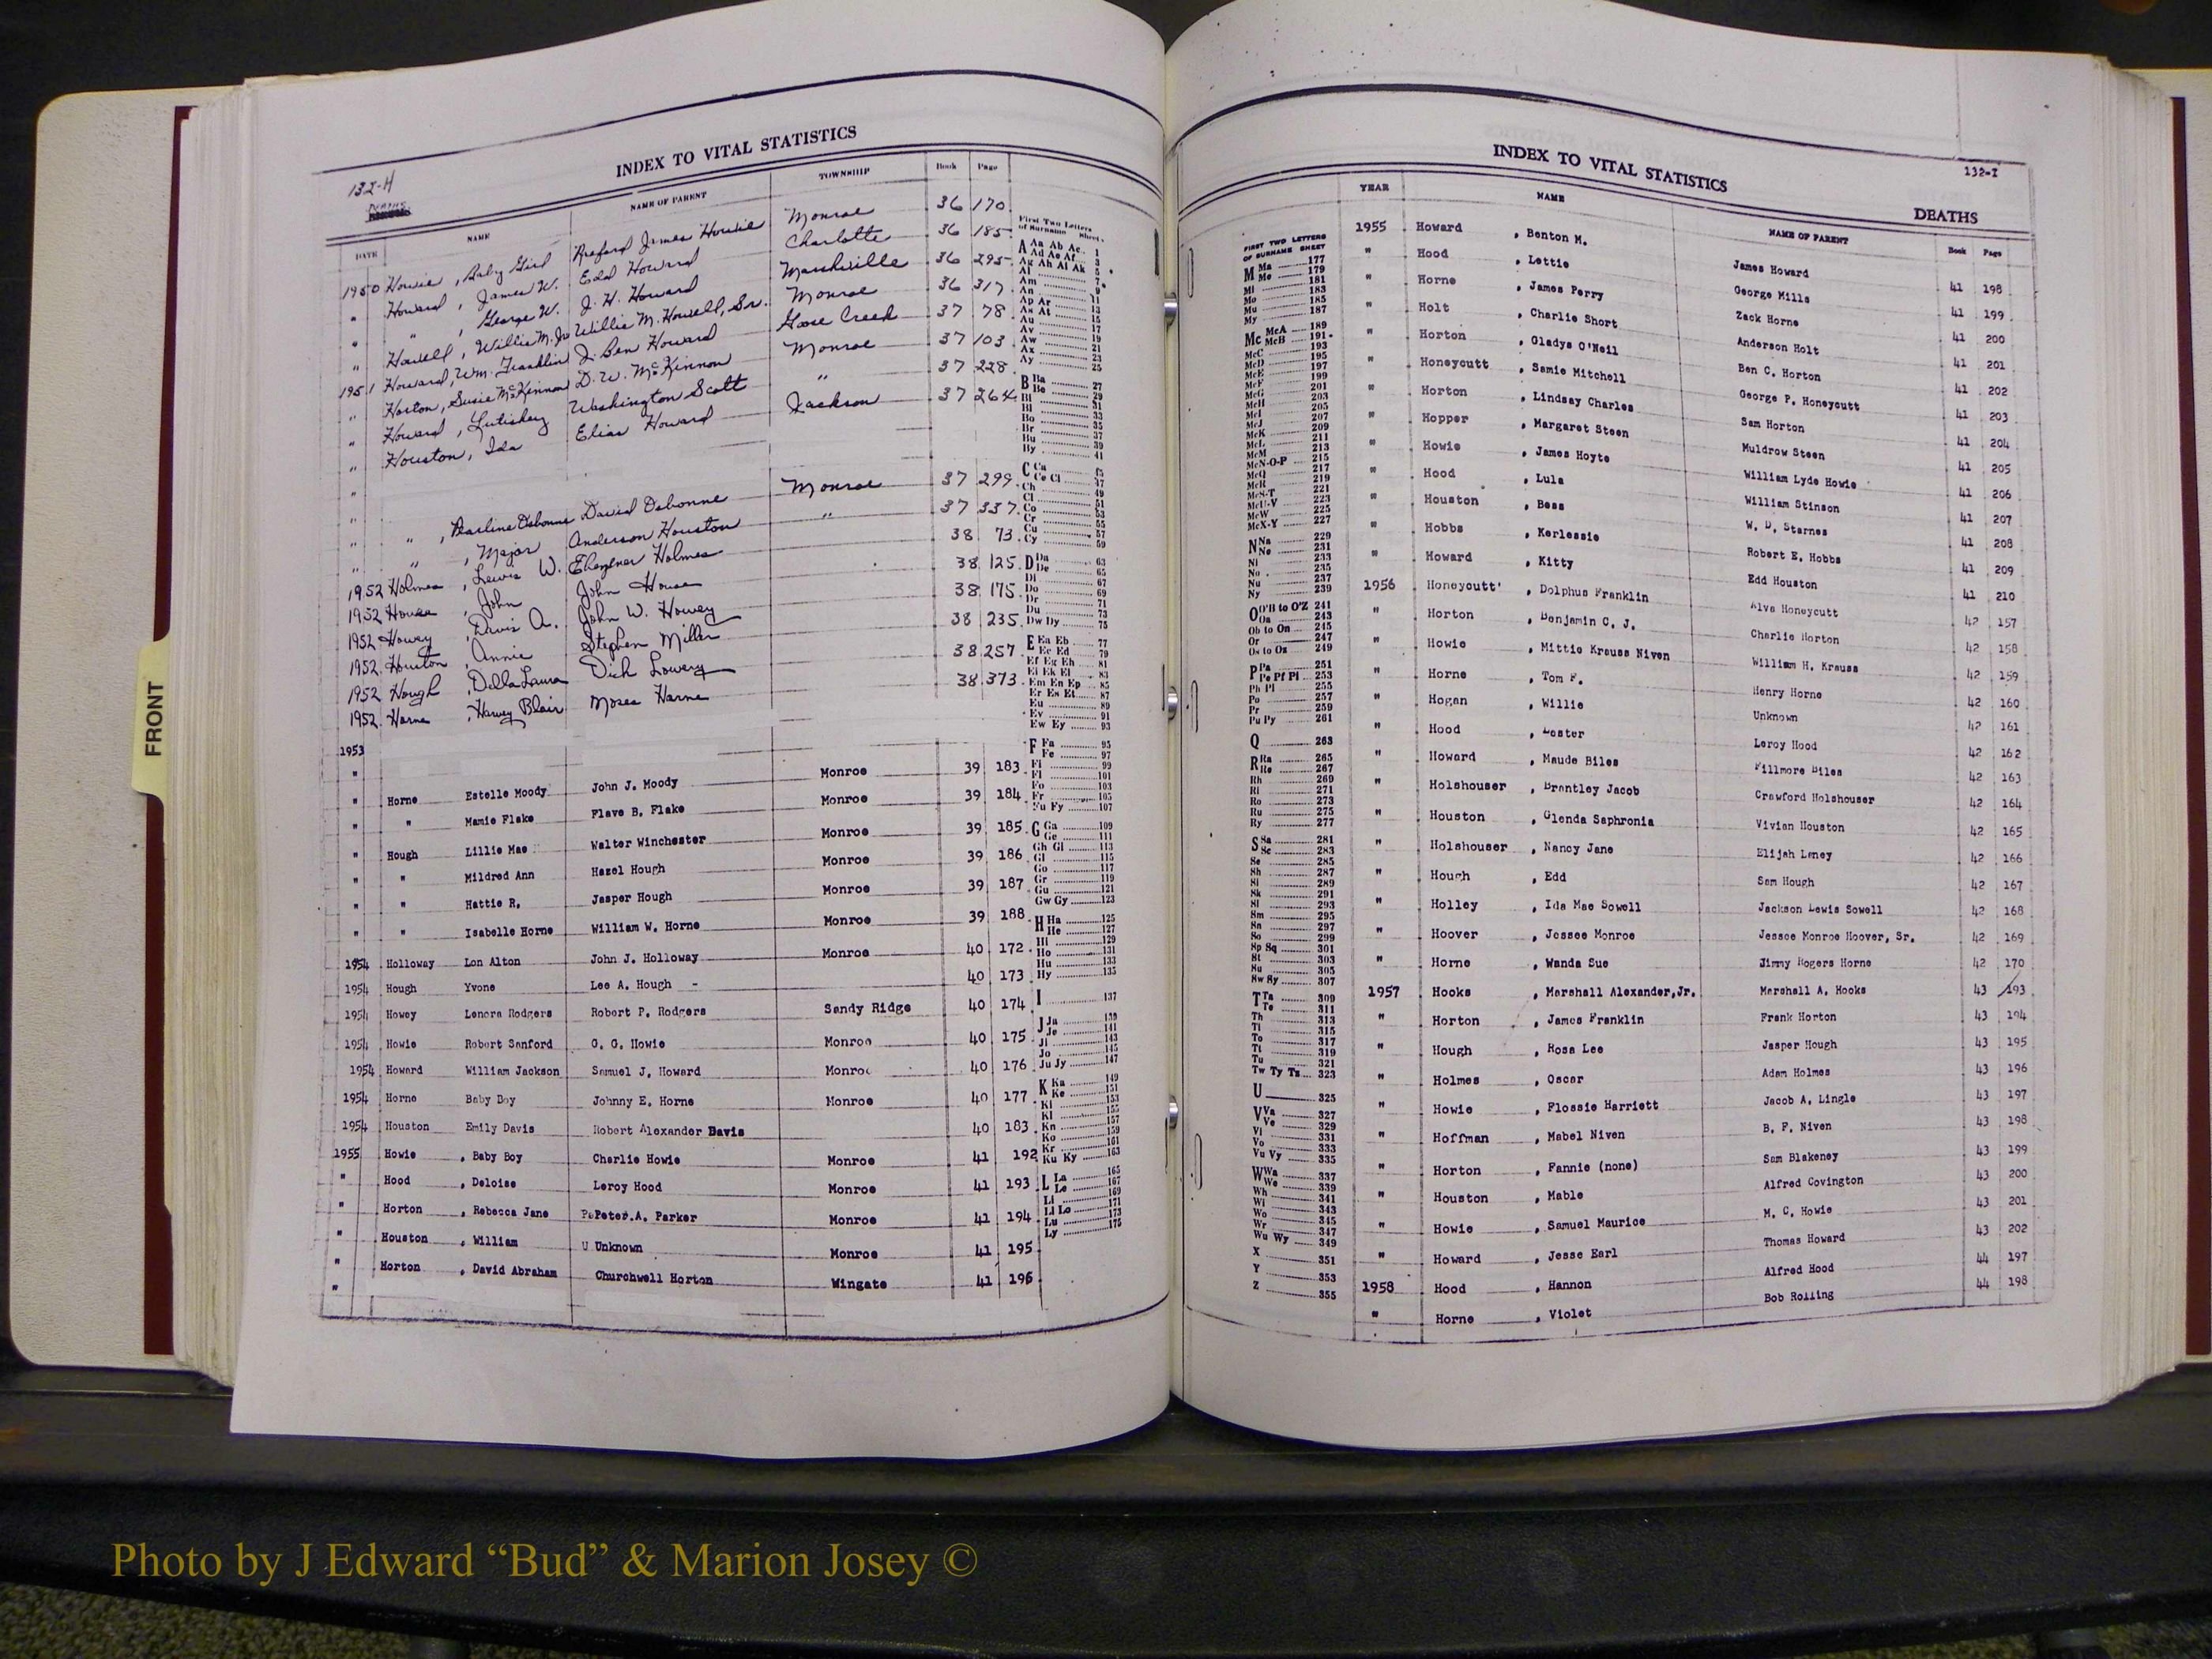 FRONT
INDEX TO VITAL STATISTICS
132-H
DEATHS
DATE NAME NAME OF PARENT TOWNSHIP Book Page
1950 Howie, Baby Girl Raeford James Howie Monroe 36 170
" Howard, James W. Edd Howard Charlotte 36 185
" " , George W. J. H. Howard Marshville 36 295
" Howell, Willis M. Jr Willis M. Howell, Sr. Monroe 36 317
1951 Howard, Wm. Franklin J. Ben Howard Goose Creek 37 78
" Horton, Susie McKinnon D. W. McKinnon Monroe 37 103
" Howard, Lutishey Washington Scott " 37 228
" Houston, Ida Elias Howard Jackson 37 264
"
" " , Pearline Osborne David Osborne Monroe 37 299
" " , Major Anderson Houston " 37 337
1952 Holmes, Lewis W. Ebenezer Holmes 38 73
1952 House, John John House 38 125
1952 Howey, Davis A. John W. Howey 38 175
1952 Houston, Annie Stephen Miller 38 235
1952 Hough, Della Laura Dick Lowery 38 257
1952 Horne, Harvey Blair Moses Horne 38 373
1953
"
" Horne Estelle Moody John J. Moody Monroe 39 183
" " Mamie Flake Flave B. Flake Monroe 39 184
" Hough Lillie Mae Walter Winchester Monroe 39 185
" " Mildred Ann Hazel Hough Monroe 39 186
" " Hattie R. Jasper Hough Monroe 39 187
" " Isabelle Horne William W. Horne Monroe 39 188
1954 Holloway Lon Alton John J. Holloway Monroe 40 172
1954 Hough Yvone Lee A. Hough - 40 173
1954 Howey Lenora Rodgers Robert P. Rodgers Sandy Ridge 40 174
1954 Howie Robert Sanford G. G. Howie Monroe 40 175
1954 Howard William Jackson Samuel J. Howard Monroe 40 176
1954 Horne Baby Boy Johnny E. Horne Monroe 40 177
1954 Houston Emily Davis Robert Alexander Davis 40 183
1955 Howie , Baby Boy Charlie Howie Monroe 41 192
" Hood , Deloise Leroy Hood Monroe 41 193
" Horton , Rebecca Jane Peter A. Parker Monroe 41 194
" Houston , William U Unknown Monroe 41 195
" Horton , David Abraham Churchwell Horton Wingate 41 196
"
First Two Letters of Surname Sheet
A Aa Ab Ac 1
A Ad Ae Af 3
Ag Ah Ai Ak 5
Al 7
Am 9
An 11
Ap Ar 13
As At 15
Au 17
Av 19
Aw 21
Ax 23
Ay 25
B Ba 27
Be 29
Bi 31
Bl 33
Bo 35
Br 37
Bu 39
By 41
C Ca 45
Ce Ci 47
Ch 49
Cl 51
Co 53
Cr 55
Cu 57
Cy 59
D Da 63
De 65
Di 67
Do 69
Dr 71
Du 73
Dw Dy 75
E Ea Eb 77
Ec Ed 79
Ef Eg Eh 81
Ei Ek El 83
Em En Ep 85
Er Es Et 87
Eu 89
Ev 91
Ew Ey 93
F Fa 95
Fe 97
Fi 99
Fl 101
Fo 103
Fr 105
Fu Fy 107
G Ga 109
Ge 111
Gh Gi 113
Gl 115
Go 117
Gr 119
Gu 121
Gw Gy 123
H Ha 125
He 127
Hi 129
Ho 131
Hu 133
Hy 135
I 137
J Ja 139
Je 141
Ji 143
Jo 145
Ju Jy 147
K Ka 149
Ke 151
Ki 153
Kl 155
Kn 157
Ko 159
Kr 161
Ku Ky 163
L La 165
Le 167
Li 169
Ll Lo 171
Lu 173
Ly 175
INDEX TO VITAL STATISTICS
132-I
DEATHS
YEAR NAME NAME OF PARENT Book Page
FIRST TWO LETTERS OF SURNAME SHEET
M Ma 177
Me 179
Mi 181
Mo 183
Mu 185
My 187
Mc McA 189
McB 191
McC 193
McD 195
McE 197
McF 199
McG 201
McH 203
McI 205
McJ 207
McK 209
McL 211
McM 213
McN-O-P 215
McQ 217
McR 219
McS-T 221
McU-V 223
McW 225
McX-Y 227
N Na 229
Ne 231
Ni 233
No 235
Nu 237
Ny 239
O O'B to O'Z 241
Oa 243
Ob to On 245
Or 247
Os to Oz 249
P Pa 251
Pe Pf Pi 253
Ph Pl 255
Po 257
Pr 259
Pu Py 261
Q 263
R Ra 265
Re 267
Rh 269
Ri 271
Ro 273
Ru 275
Ry 277
S Sa 281
Sc 283
Se 285
Sh 287
Si 289
Sk 291
Sl 293
Sm 295
Sn 297
So 299
Sp Sq 301
St 303
Su 305
Sw Sy 307
T Ta 309
Te 311
Th 313
Ti 315
To 317
Tr 319
Tu 321
Tw Ty Tz 323
U 325
V Va 327
Ve 329
Vi 331
Vo 333
Vu Vy 335
W Wa 337
We 339
Wh 341
Wi 343
Wo 345
Wr 347
Wu Wy 349
X 351
Y 353
Z 355
1955 Howard , Benton M. James Howard 41 198
" Hood , Lettie George Mills 41 199
" Horne , James Perry Zack Horne 41 200
" Holt , Charlie Short Anderson Holt 41 201
" Horton , Gladys O'Neil Ben C. Horton 41 202
" Honeycutt , Samie Mitchell George P. Honeycutt 41 203
" Horton , Lindsay Charles Sam Horton 41 204
" Hopper , Margaret Steen Muldrow Steen 41 205
" Howie , James Hoyte William Lyde Howie 41 206
" Hood , Lula William Stinson 41 207
" Houston , Bess W. D. Starnes 41 208
" Hobbs , Kerlessie Robert E. Hobbs 41 209
" Howard , Kitty Edd Houston 41 210
1956 Honeycutt' , Dolphus Franklin Alva Honeycutt 42 157
" Horton , Benjamin C. J. Charlie Horton 42 158
" Howie , Mittie Krauss Niven William H. Krauss 42 159
" Horne , Tom F. Henry Horne 42 160
" Hogan , Willie Unknown 42 161
" Hood , Lester Leroy Hood 42 162
" Howard , Maude Biles Fillmore Biles 42 163
" Holshouser , Brantley Jacob Crawford Holshouser 42 164
" Houston , Glenda Saphronia Vivian Houston 42 165
" Holshouser , Nancy Jane Elijah Laney 42 166
" Hough , Edd Sam Hough 42 167
" Holley , Ida Mae Sowell Jackson Lewis Sowell 42 168
" Hoover , Jessee Monroe Jessee Monroe Hoover, Sr. 42 169
" Horne , Wanda Sue Jimmy Rogers Horne 42 170
1957 Hooks , Marshall Alexander,Jr. Marshall A. Hooks 43 193
" Horton , James Franklin Frank Horton 43 194
" Hough , Rosa Lee Jasper Hough 43 195
" Holmes , Oscar Adam Holmes 43 196
" Howie , Flossie Harriett Jacob A. Lingle 43 197
" Hoffman , Mabel Niven B. F. Niven 43 198
" Horton , Fannie (none) Sam Blakeney 43 199
" Houston , Mable Alfred Covington 43 200
" Howie , Samuel Maurice M. C. Howie 43 201
" Howard , Jesse Earl Thomas Howard 43 202
1958 Hood , Hannon Alfred Hood 44 197
" Horne , Violet Bob Rolling 44 198
Photo by J Edward “Bud” & Marion Josey ©